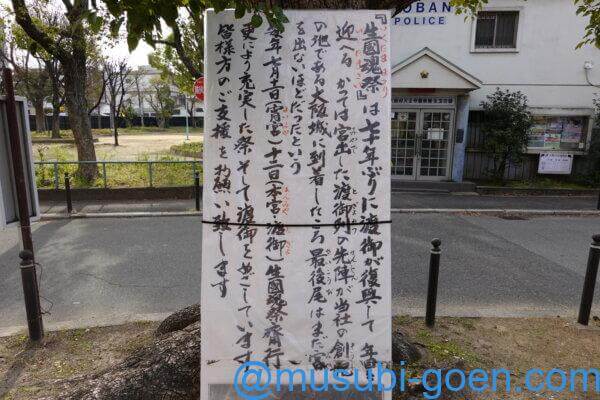 KOBAN
POLICE
『生國魂祭』は 年ぶりに渡御が復興して
迎へる かつては宮出した渡御列の先陣が当社の創祀
の地である大阪城に到着したころ最後尾はまだ宮
を出ないほどだったという
毎年七月十一日(宵宮)十二日(本宮・渡御)生國魂祭斎行
更により充実した祭 そして渡御をめざしています
皆様方のご支援をお願い致します
@musubi-goen.com